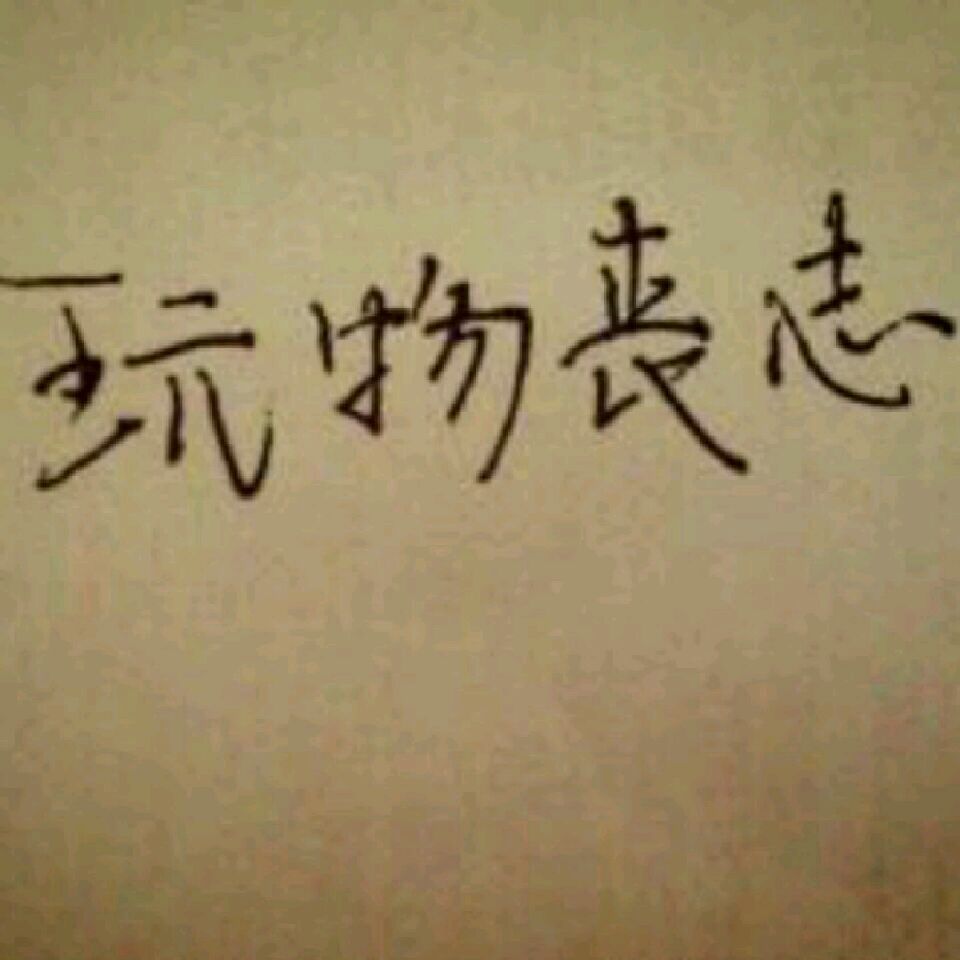 玩物丧志